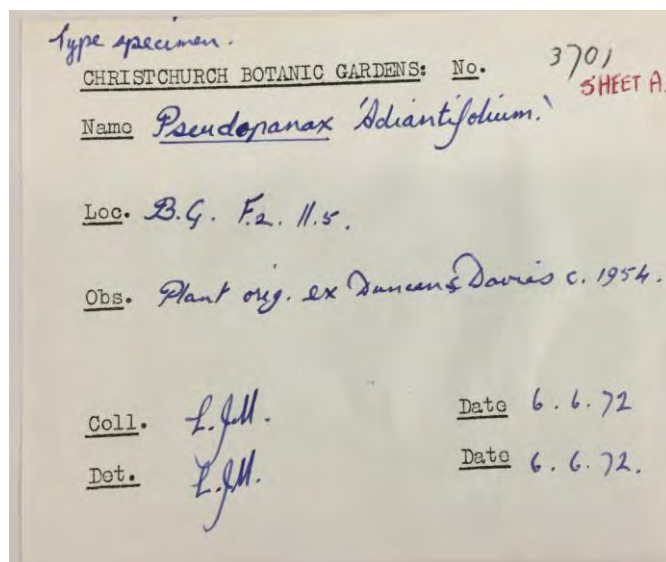 Type specimen.
CHRISTCHURCH BOTANIC GARDENS: No. 3701
SHEET A.
Name Pseudopanax 'Adiantifolium.'
Loc. B.G. F.2. 11.5.
Obs. Plant orig. ex Duncan & Davies c. 1954.
Coll. L.J.M. Date 6.6.72
Det. L.J.M. Date 6.6.72.